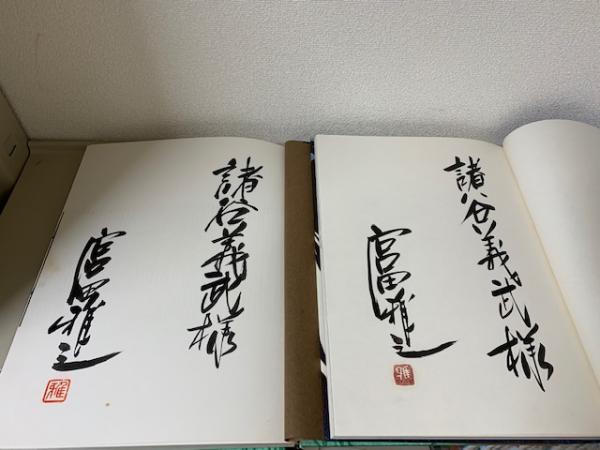 諸谷義武様
宮田雅之
雅
諸谷義武様
宮田雅之
雅